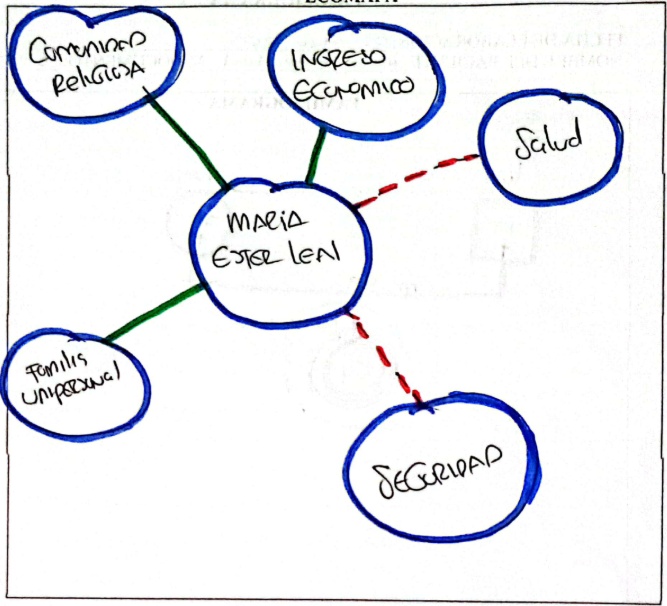 ECOMAPA
COMUNIDAD
RELIGIOSA
INGRESO
ECONOMICO
Salud
MARIA
ESTER LEAL
Familia
Unipersonal
SEGURIDAD